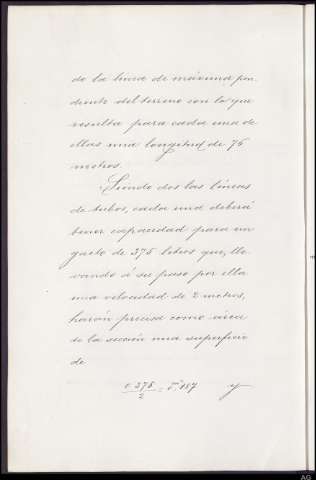 de la linea de máxima pen-
diente del terreno con lo que
resulta para cada una de
ellas una longitud de 75
metros.
Siendo dos las líneas
de tubos, cada una deberá
tener capacidad para un
gasto de 375 litros que, lle-
vando á su paso por ella
una velocidad de 2 metros,
harán precisa como área
de la sección una superficie
de
0.375/2 = 0.187 y
AG